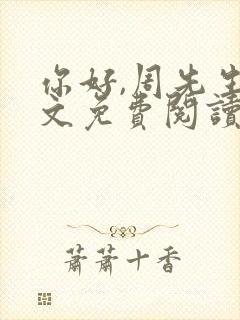 你好,周先生
文免費閱讀
蕭蕭十香